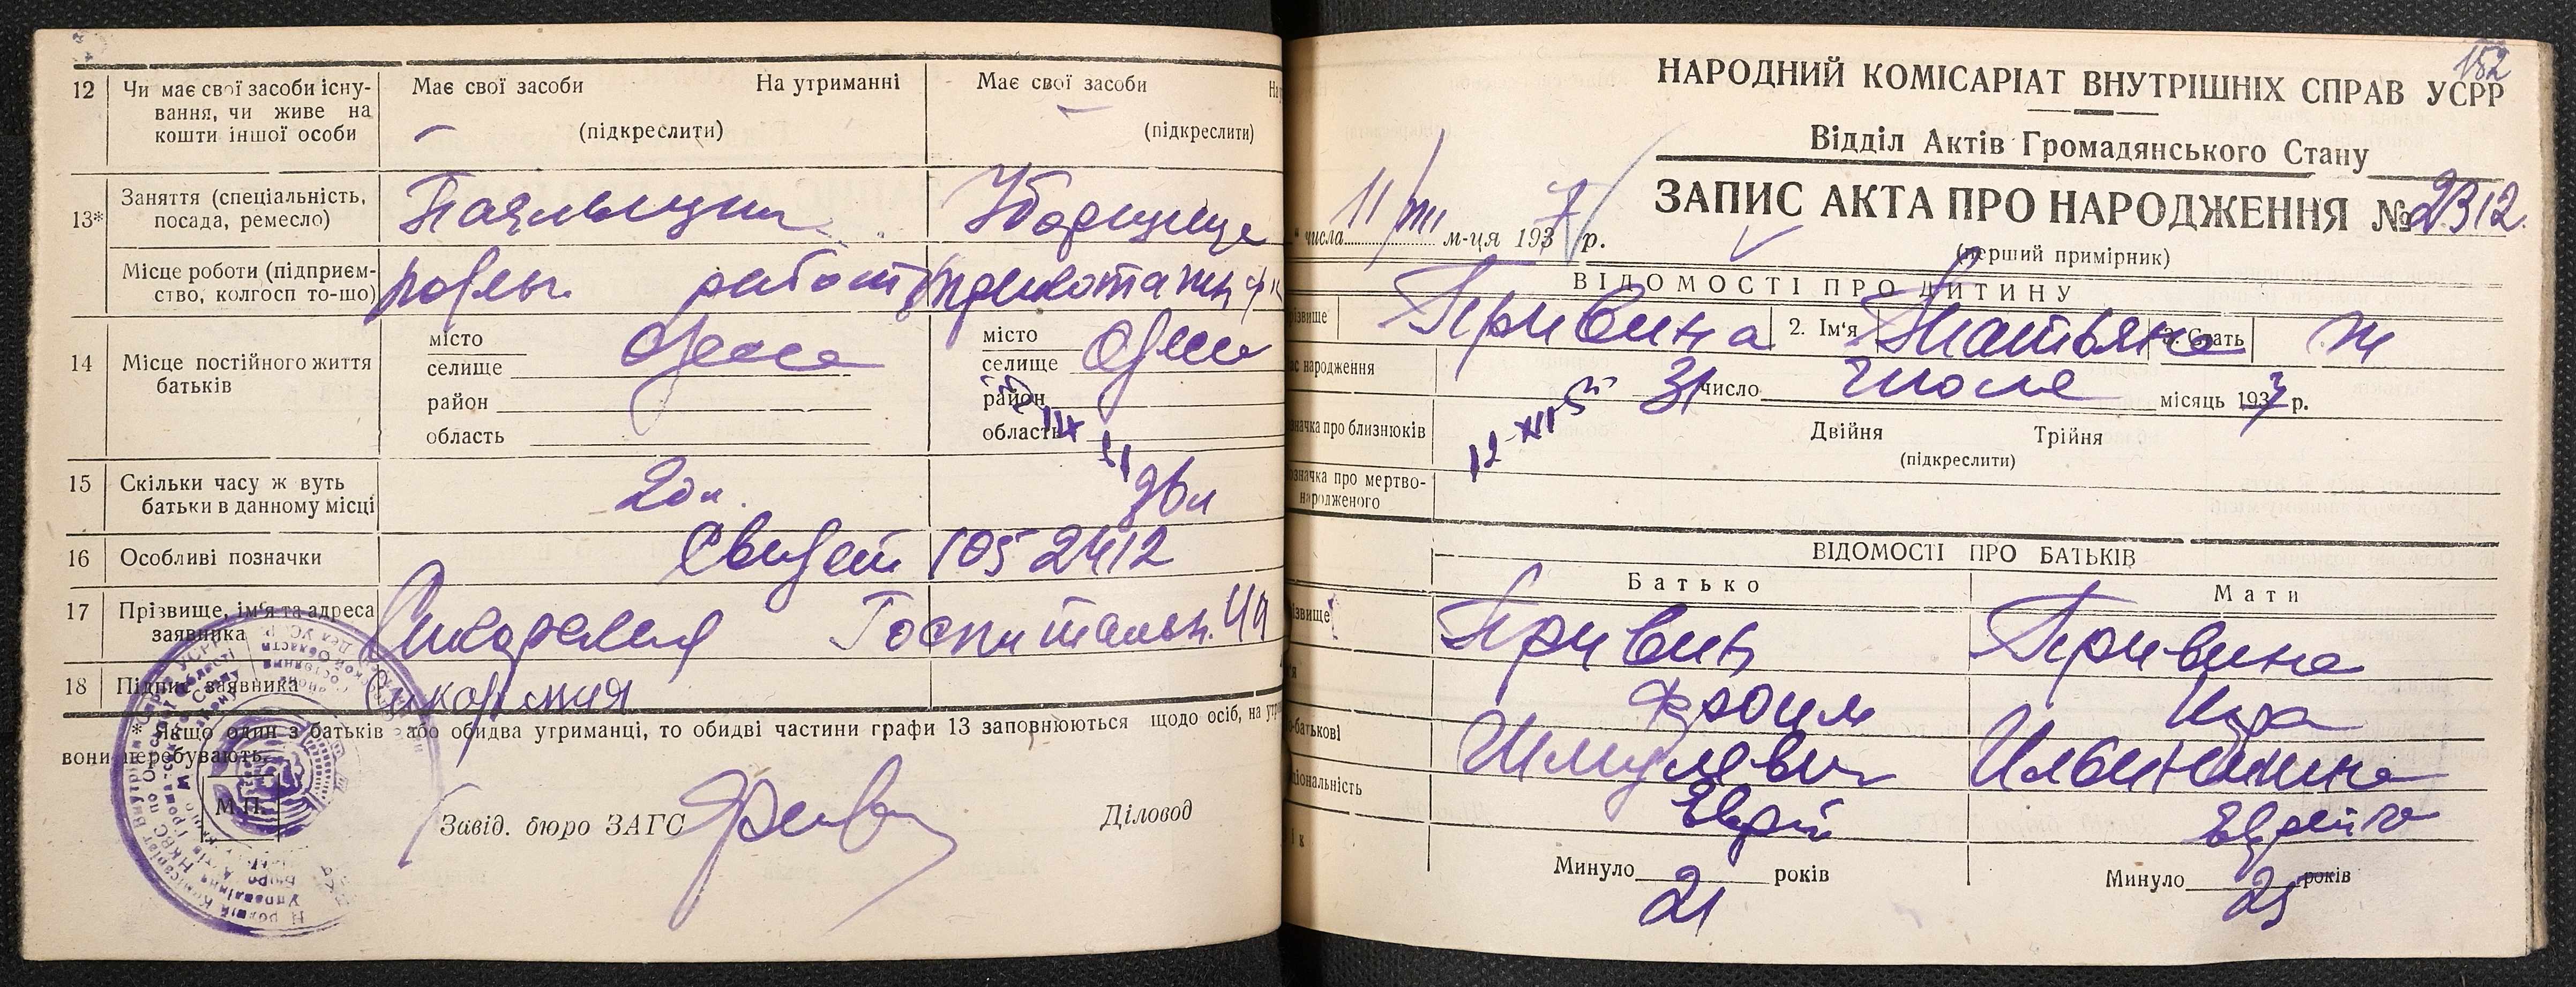 12 Чи має свої засоби існу-
вання, чи живе на
кошти іншої особи
Має свої засоби На утриманні
(підкреслити)
Має свої засоби На у
(підкреслити)
13* Заняття (спеціальність,
посада, ремесло)
Паяльщик Уборщица
Місце роботи (підприєм-
ство, колгосп то-що)
14 Місце постійного життя
батьків
місто
селище Одесса
район
область
місто
селище Одесса
район
область
15 Скільки часу ж вуть
батьки в данному місці
20 л.
16 Особливі позначки
Свидет 1052412
17 Прізвище, ім'я та адреса
заявника
Сикорская Госпитальн.
18 Підпис заявника
Сикорская
* Якщо один з батьків або обидва утриманці, то обидві частини графи 13 заповнюються щодо осіб, на утр
вони перебувають.
М.П.
Завід. бюро ЗАГС
Діловод
152
НАРОДНИЙ КОМІСАРІАТ ВНУТРІШНІХ СПРАВ УСРР
Відділ Актів Громадянського Стану
ЗАПИС АКТА ПРО НАРОДЖЕННЯ № 2312.
(перший примірник)
" числа 11/VIII м-ця 1937 р.
ВІДОМОСТІ ПРО ДИТИНУ
різвище Привина 2. Ім'я Татьяна 3. Стать ж
ас народження
31 число Июля місяць 1937 р.
значка про близнюків
Двійня Трійня
(підкреслити)
означка про мертво-
народженого
ВІДОМОСТІ ПРО БАТЬКІВ
Батько Мати
ізвище Привин Привина
м'я Фроим
о-батькові Шмулевич
ціональність Еврей Еврейка
ік
Минуло 21 років
Минуло 25 років